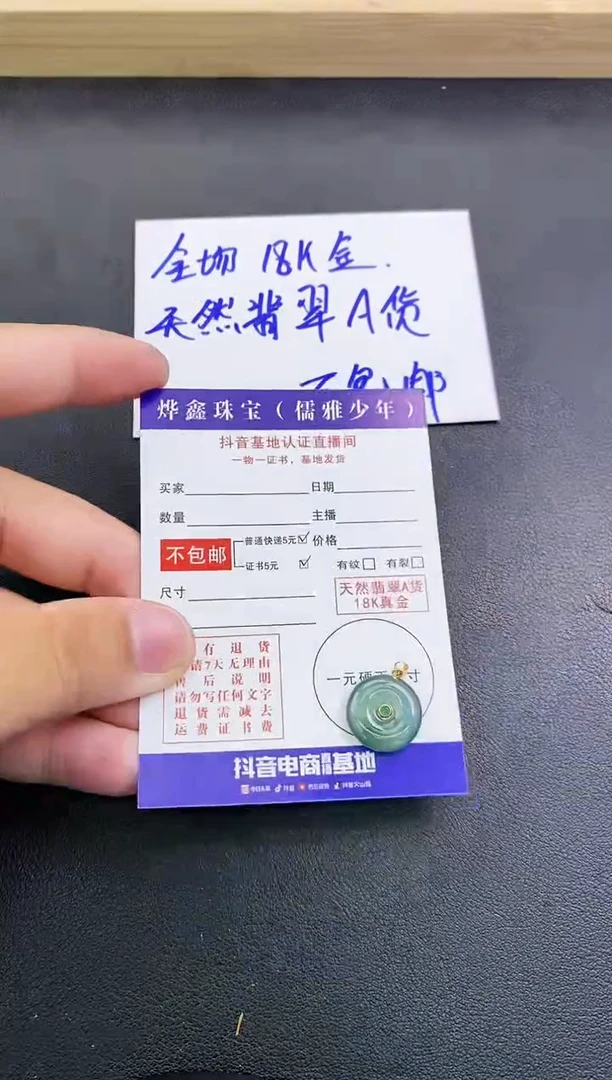 全场 18K金.
天然翡翠A货
不包邮
烨鑫珠宝（儒雅少年）
抖音基地认证直播间
一物一证书，基地发货
买家 日期
数量 主播
不包邮 普通快递5元 价格
证书5元 有纹 有裂
尺寸
天然翡翠A货
18K真金
有退货
请7天无理由
后说明
请勿写任何文字
退货需减去
运费证书费
一元硬 寸
抖音电商直播基地
今日头条 抖音 西瓜视频 抖音火山版